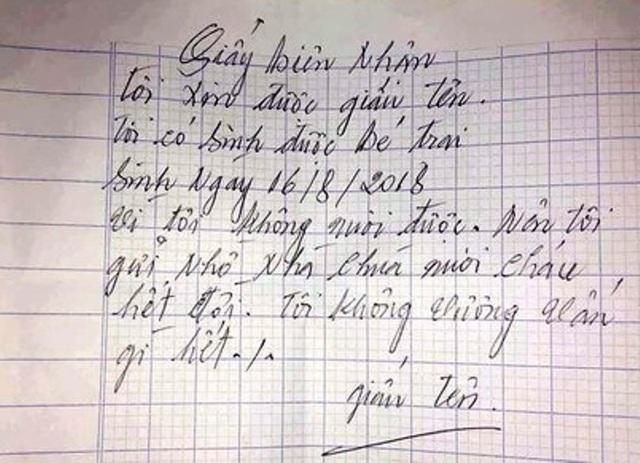 Giấy biên nhận
Tôi xin được giấu tên.
Tôi có sinh được bé trai
sinh ngày 16/8/2018
vì tôi không nuôi được. Nên tôi
gửi nhờ nhà chùa nuôi cháu
hết đời. Tôi không vướng vấn
gì hết./.
giấu tên.